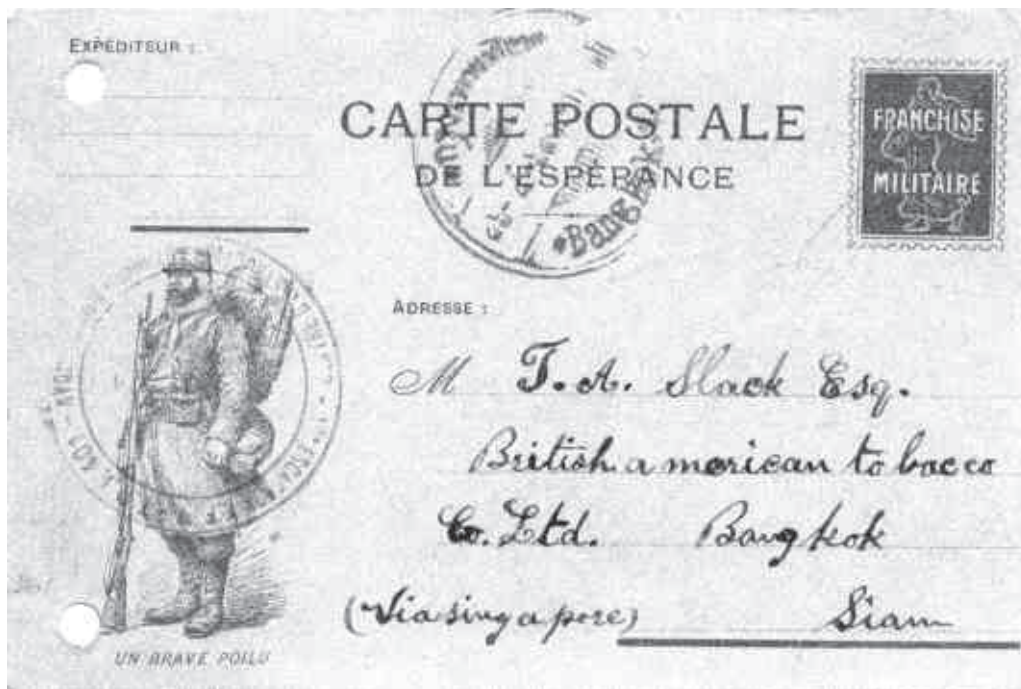 EXPÉDITEUR :
CARTE POSTALE
DE L'ESPÉRANCE
FRANCHISE
MILITAIRE
Bangkok
ADRESSE :
M T. A. Slack Esq.
British american tobacco
Co. Ltd. Bangkok
(Via singapore) Siam
UN BRAVE POILU